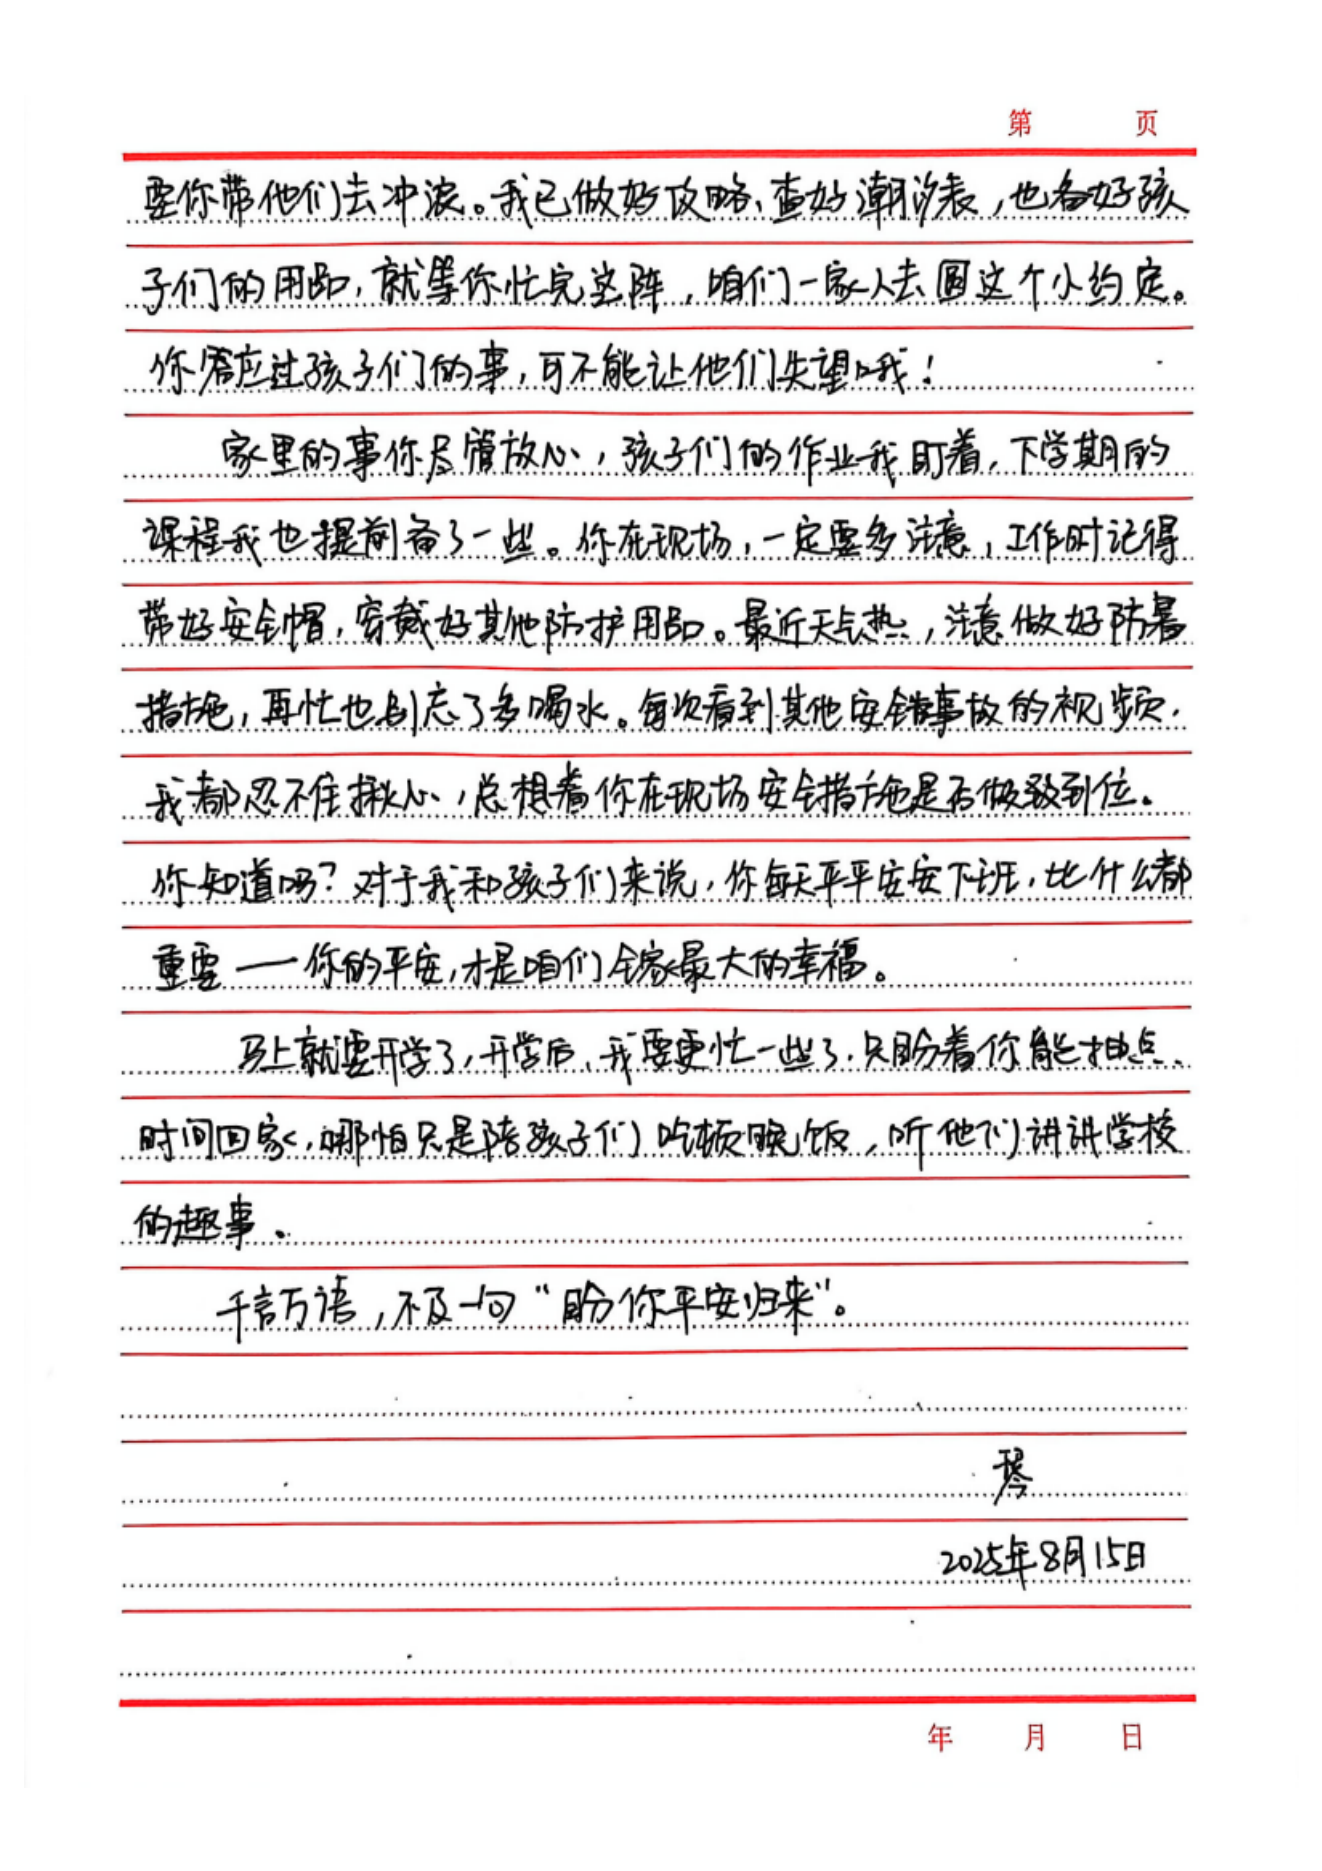 第 页
要你带他们去冲浪。我已做好攻略、查好潮汐表，也备好孩
子们的用品，就等你忙完这阵，咱们一家人去圆这个小约定。
你答应过孩子们的事，可不能让他们失望哦！
家里的事你尽管放心，孩子们的作业我盯着，下学期的
课程我也提前备了一些。你在现场，一定要多注意，工作时记得
带好安全帽，穿戴好其他防护用品。最近天气热，注意做好防暑
措施，再忙也别忘了多喝水。每次看到其他安全事故的视频，
我都忍不住揪心，总想着你在现场安全措施是否做到位。
你知道吗？对于我和孩子们来说，你每天平平安安下班，比什么都
重要——你的平安，才是咱们全家最大的幸福。
马上就要开学了，开学后，我要更忙一些了，只盼着你能抽点
时间回家，哪怕只是陪孩子们吃顿晚饭，听他们讲讲学校
的趣事。
千言万语，不及一句“盼你平安归来”。
琴
2025年8月15日
年 月 日